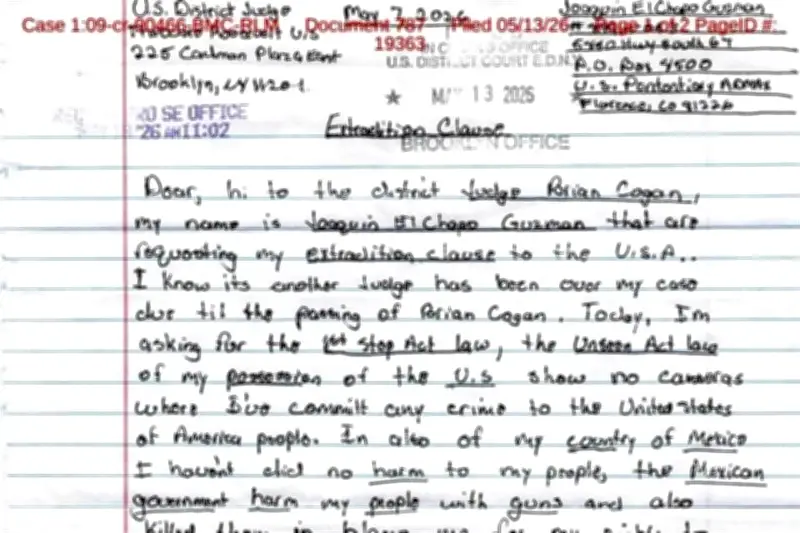 U.S. District Judge May 7, 2026 Joaquin ElChapo Guzman
Case 1:09-cr-00466-BMC-RLM Document 787 Filed 05/13/26 Page 1 of 2 PageID #:
19363
U.S
225 Cadman Plaza East
5880 Hwy South 67
P.O. Box 8500
Brooklyn, NY 11201
U.S. Penitentiary ADMAX
Florence, CO 81226
OFFICE
U.S. DISTRICT COURT E.D.N.Y
★ MAY 13 2026
PRO SE OFFICE
'26 AM11:02
Extradition Clause
BROOKLYN OFFICE
Dear, hi to the district Judge Brian Cogan,
my name is Joaquin ElChapo Guzman that are
requesting my extradition clause to the U.S.A..
I know its another Judge has been over my case
due til the passing of Brian Cogan. Today, Im
asking for the 1st Stop Act law, the Unseen Act law
of my possession of the U.S show no cameras
where I've committ any crime to the United States
of America people. In also of my country of Mexico
I haven't did no harm to my people, the Mexican
government harm my people with guns and also
killed them in blame me for my